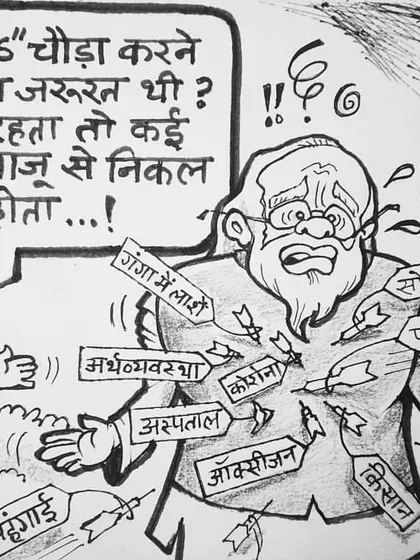 चौड़ा करने
जरूरत थी ?
रहता तो कई
बाजू से निकल
होता...!
गंगा में लाशें
अर्थव्यवस्था
कोरोना
अस्पताल
ऑक्सीजन
किसान
महंगाई